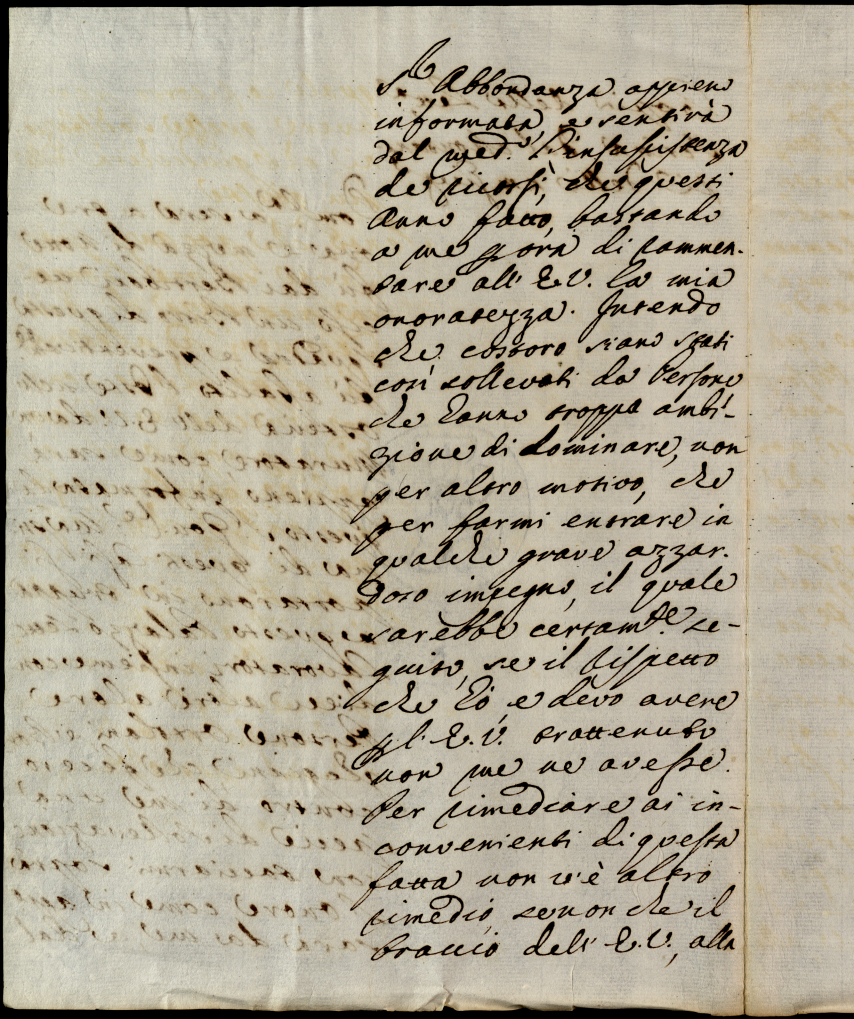 S.r Abbondanza appieno
informata, e sentirà
dal med.º l'insussistenza
de ricorsi, che questi
anno fatto, bastando
a me p ora di rammen-
tare all' E.V. la mia
onoratezza. Intendo
che costoro siano stati
così sollevati da Persone
che hanno troppa ambi-
zione di dominare, non
per altro motivo, che
per farmi entrare in
qualche grave azzar-
doso impegno, il quale
sarebbe certam.te se-
guito, se il rispetto
che hò, e devo avere
p l' E.V. trattenuto
non me ne avesse.
Per rimediare ai in-
convenienti di questa
fatta non v'è altro
rimedio, senon che il
braccio dell' E.V., alla